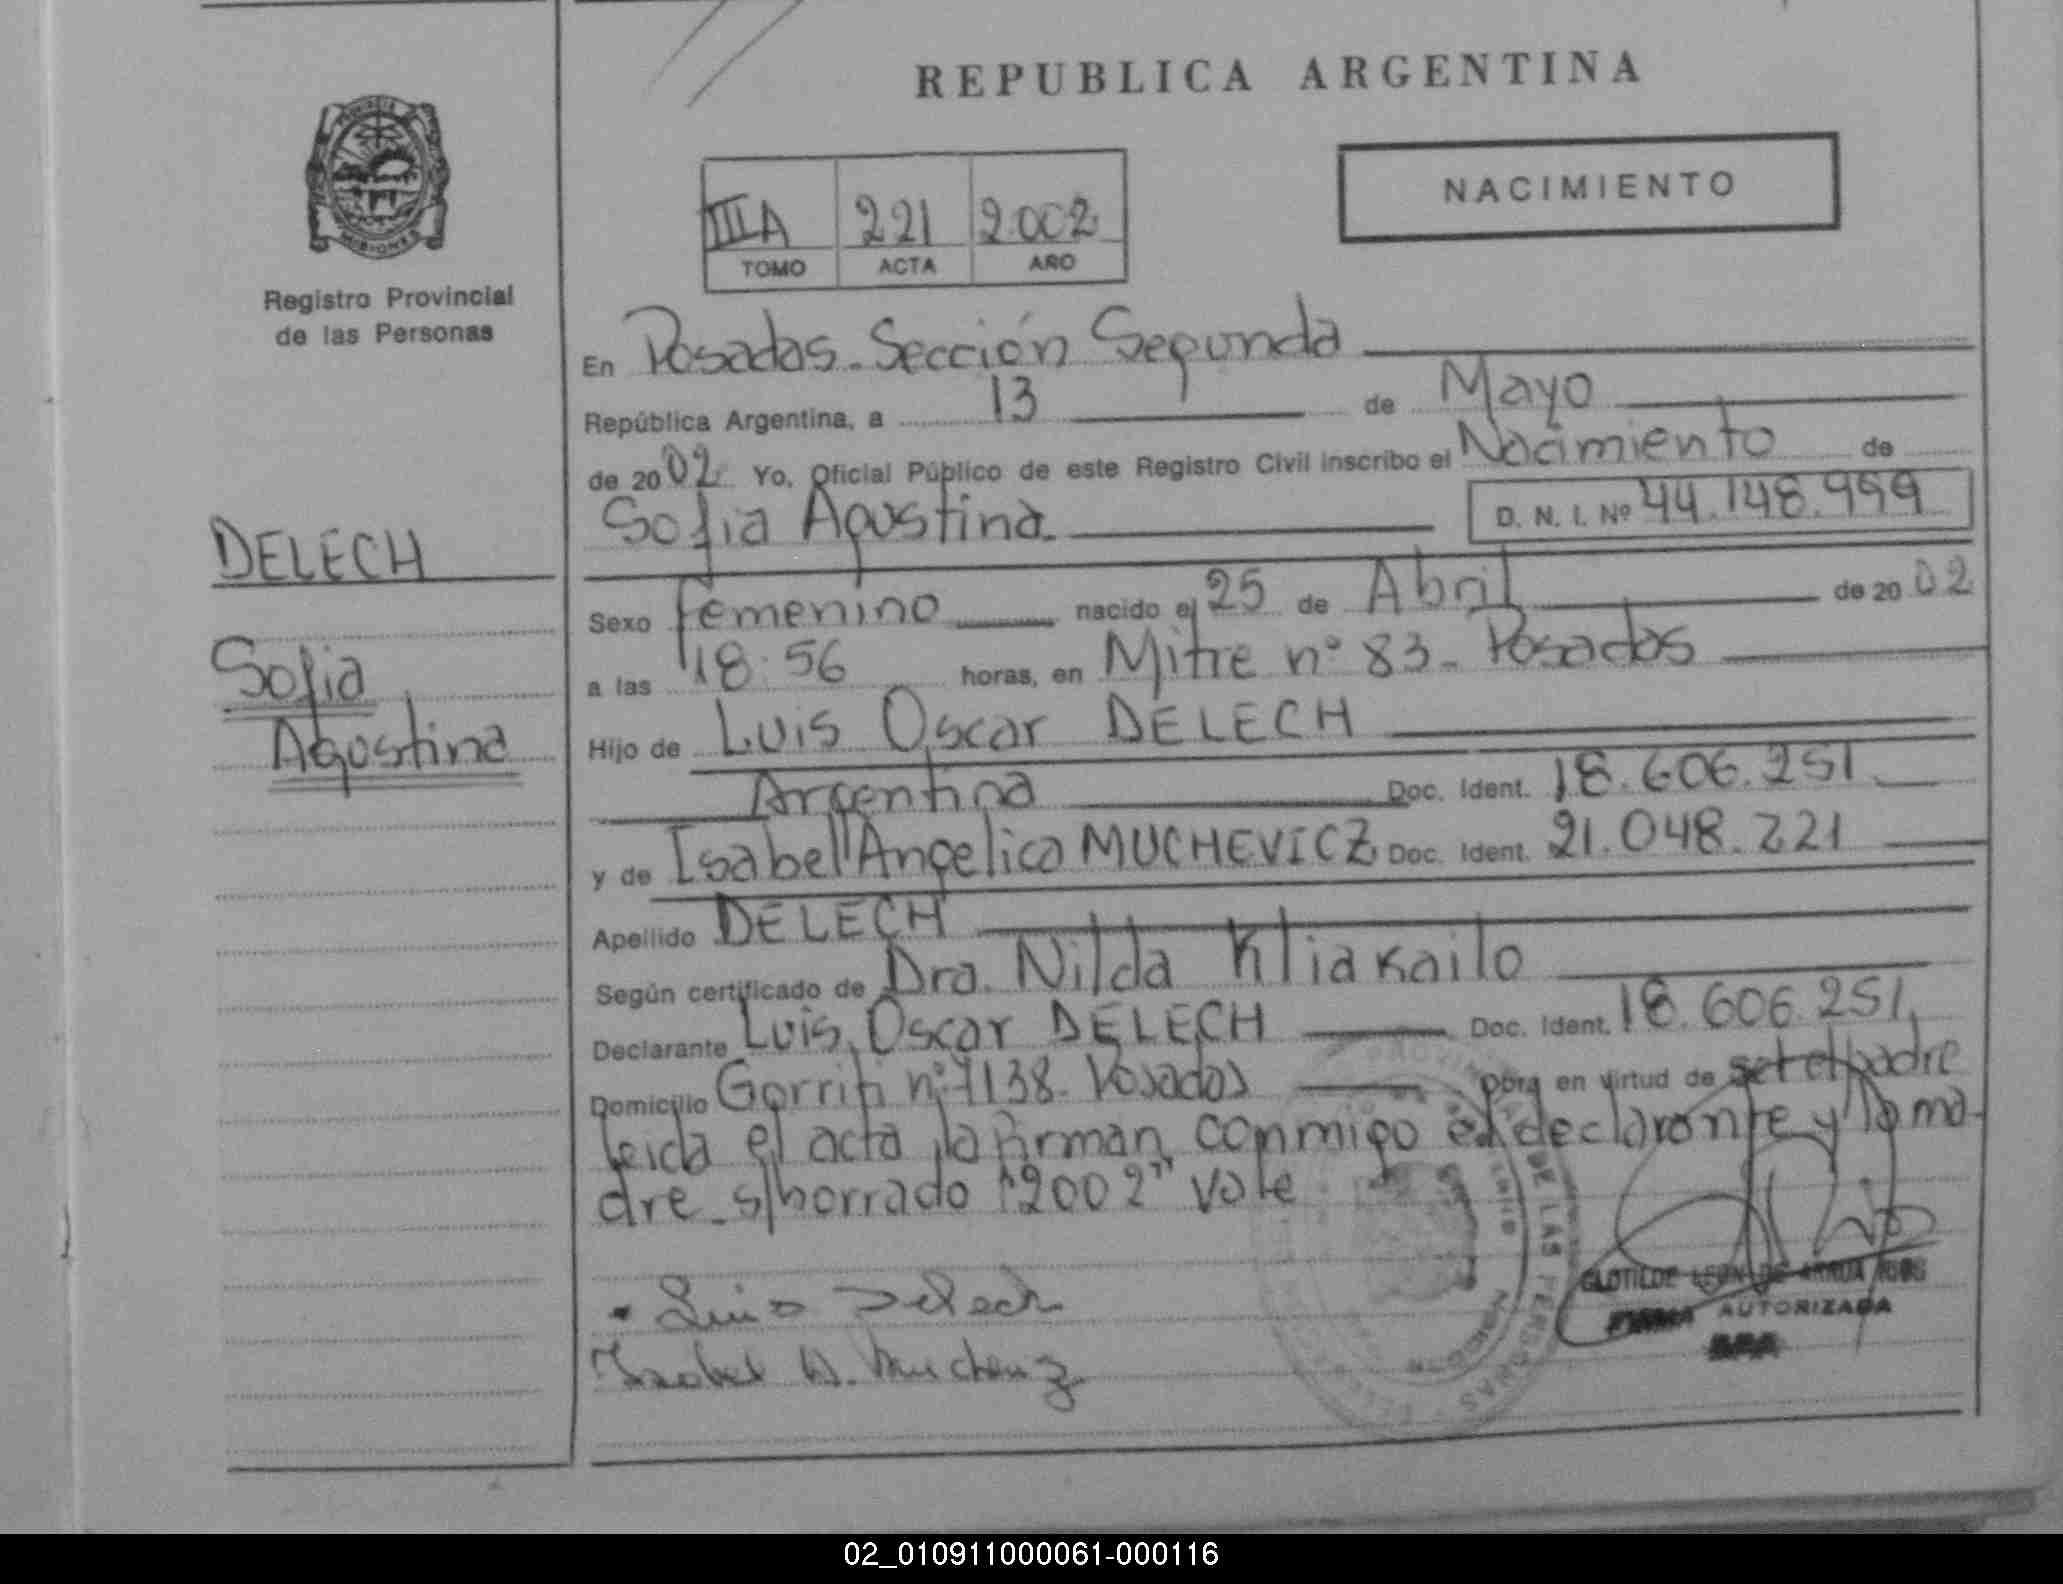 REPUBLICA ARGENTINA
NACIMIENTO
IIIA 221 2.002
TOMO ACTA AÑO
PROVINCIA
MISIONES
Registro Provincial
de las Personas
En Posadas. Sección Segunda
República Argentina, a 13 de Mayo
de 2002 Yo, Oficial Público de este Registro Civil inscribo el Nacimiento de
Sofia Agustina. D. N. I. Nº 44.148.999
DELECH
Sofia
Agustina
Sexo femenino nacido el 25 de Abril de 2002
a las 18:56 horas, en Mitre nº 83. Posadas
Hijo de Luis Oscar DELECH
Argentina Doc. Ident. 18.606.251
y de Isabel Angelica MUCHEVICZ Doc. Ident. 21.048.221
Apellido DELECH
Según certificado de Dra. Nilda Kliakailo
Declarante Luis Oscar DELECH Doc. Ident. 18.606.251
Domicilio Gorriti nº 1138. Posados Obra en virtud de ser el padre
leida el acta la firman conmigo el declarante y la ma-
dre. s/borrado "2002" Vale
Luis Delech
Isabel A.
CLOTILDE LEON DE
FIRMA AUTORIZADA
DE LAS PERSONAS
02_010911000061-000116